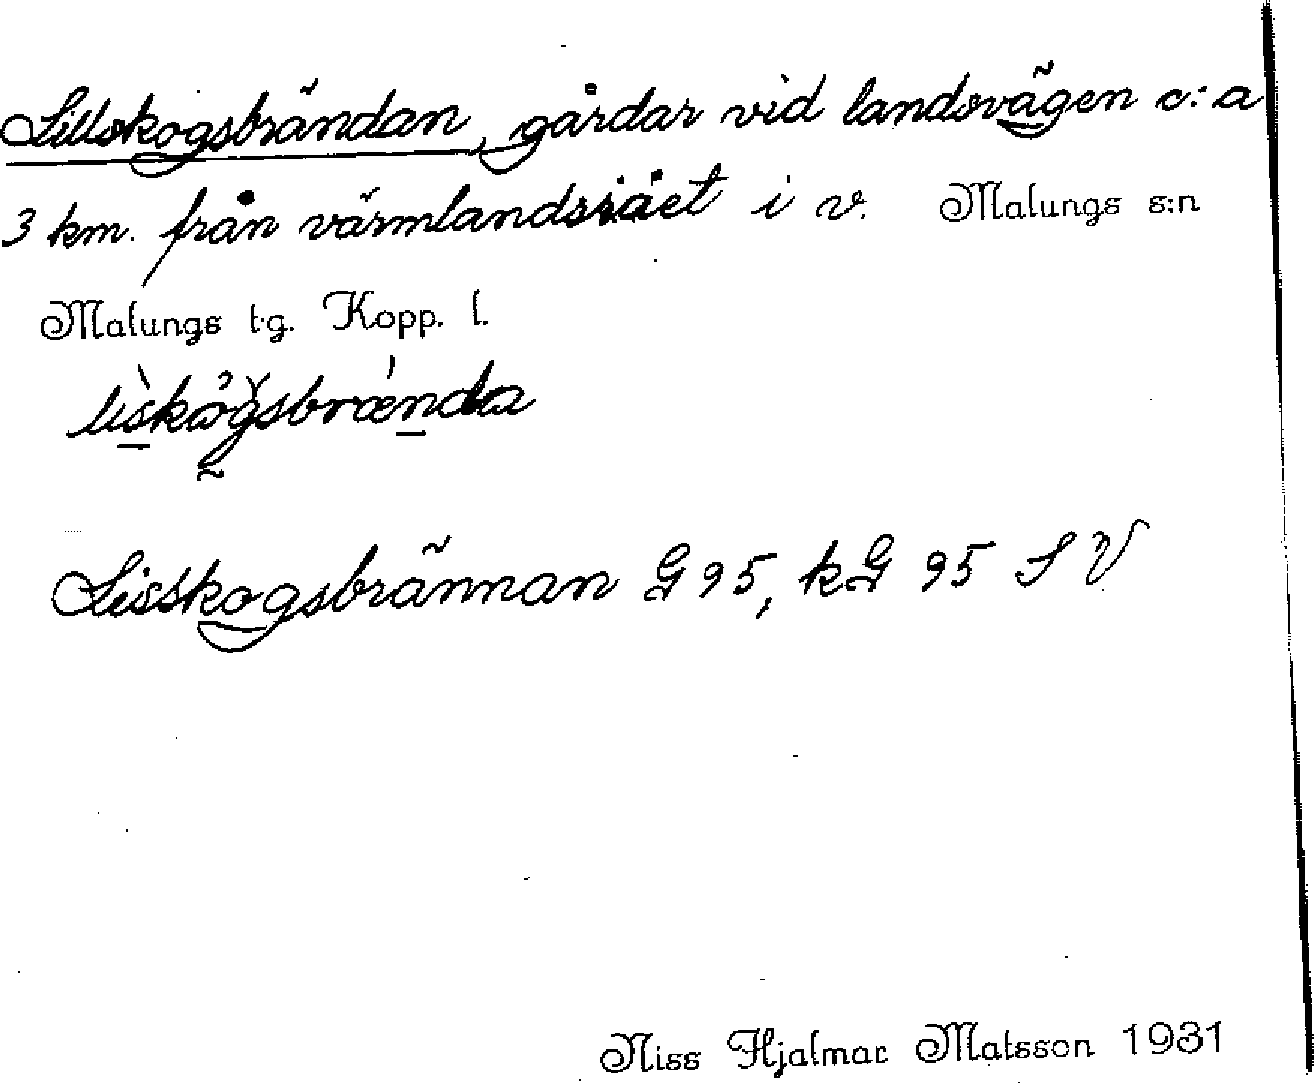 Lillskogsbrändan, gårdar vid landsvägen c:a
3 km. från värmlandsrået i v. Malungs s:n
Malungs t.g. Kopp. l.
liskågsbrænda
Lisskogsbrännan G 95, kG 95 S V
Niss Hjalmar Matsson 1931